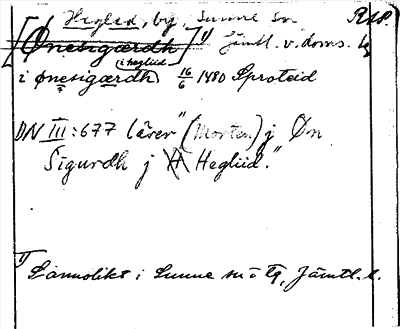 Hegled, by, Sunne sn
[Ønesigærdh]¹⁾ Jämtl. v. doms. tg
i ønesigærdh (i hegliid) 16/6 1480 Sproteid
DN III:677 läser "(Morten) j Øn
Sigurdh j H Hegliid."
1) Sannolikt i Sunne sn o tg, Jämtl. l.